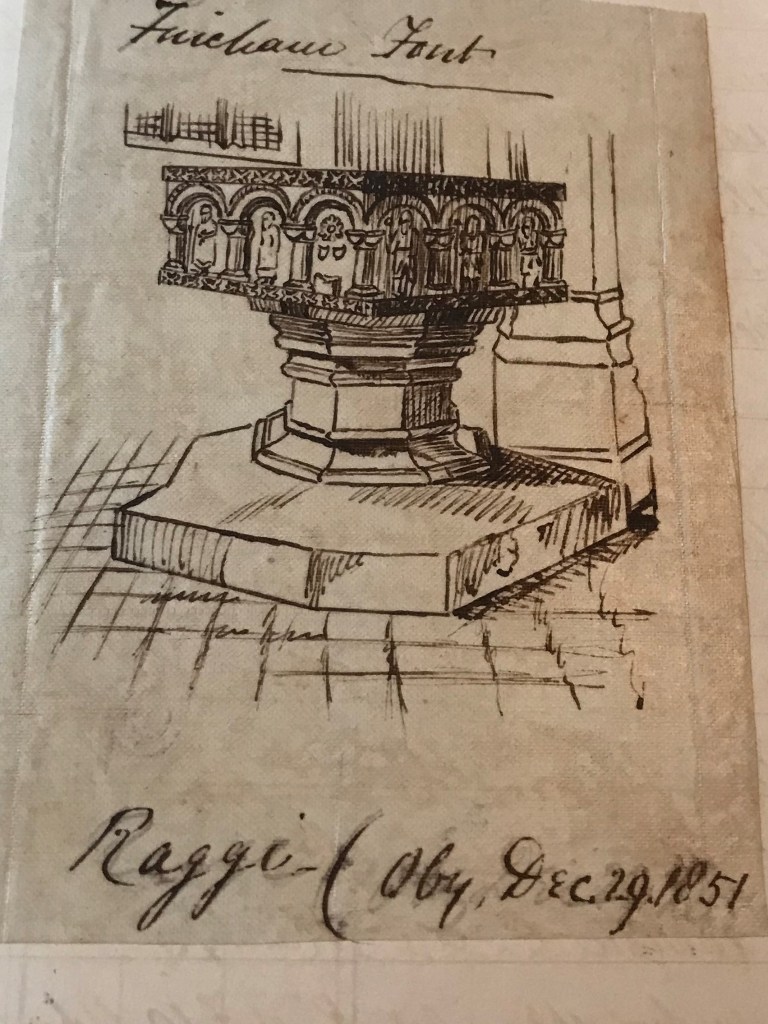 Fincham Font
Raggi - ( Oby. Dec. 29. 1851